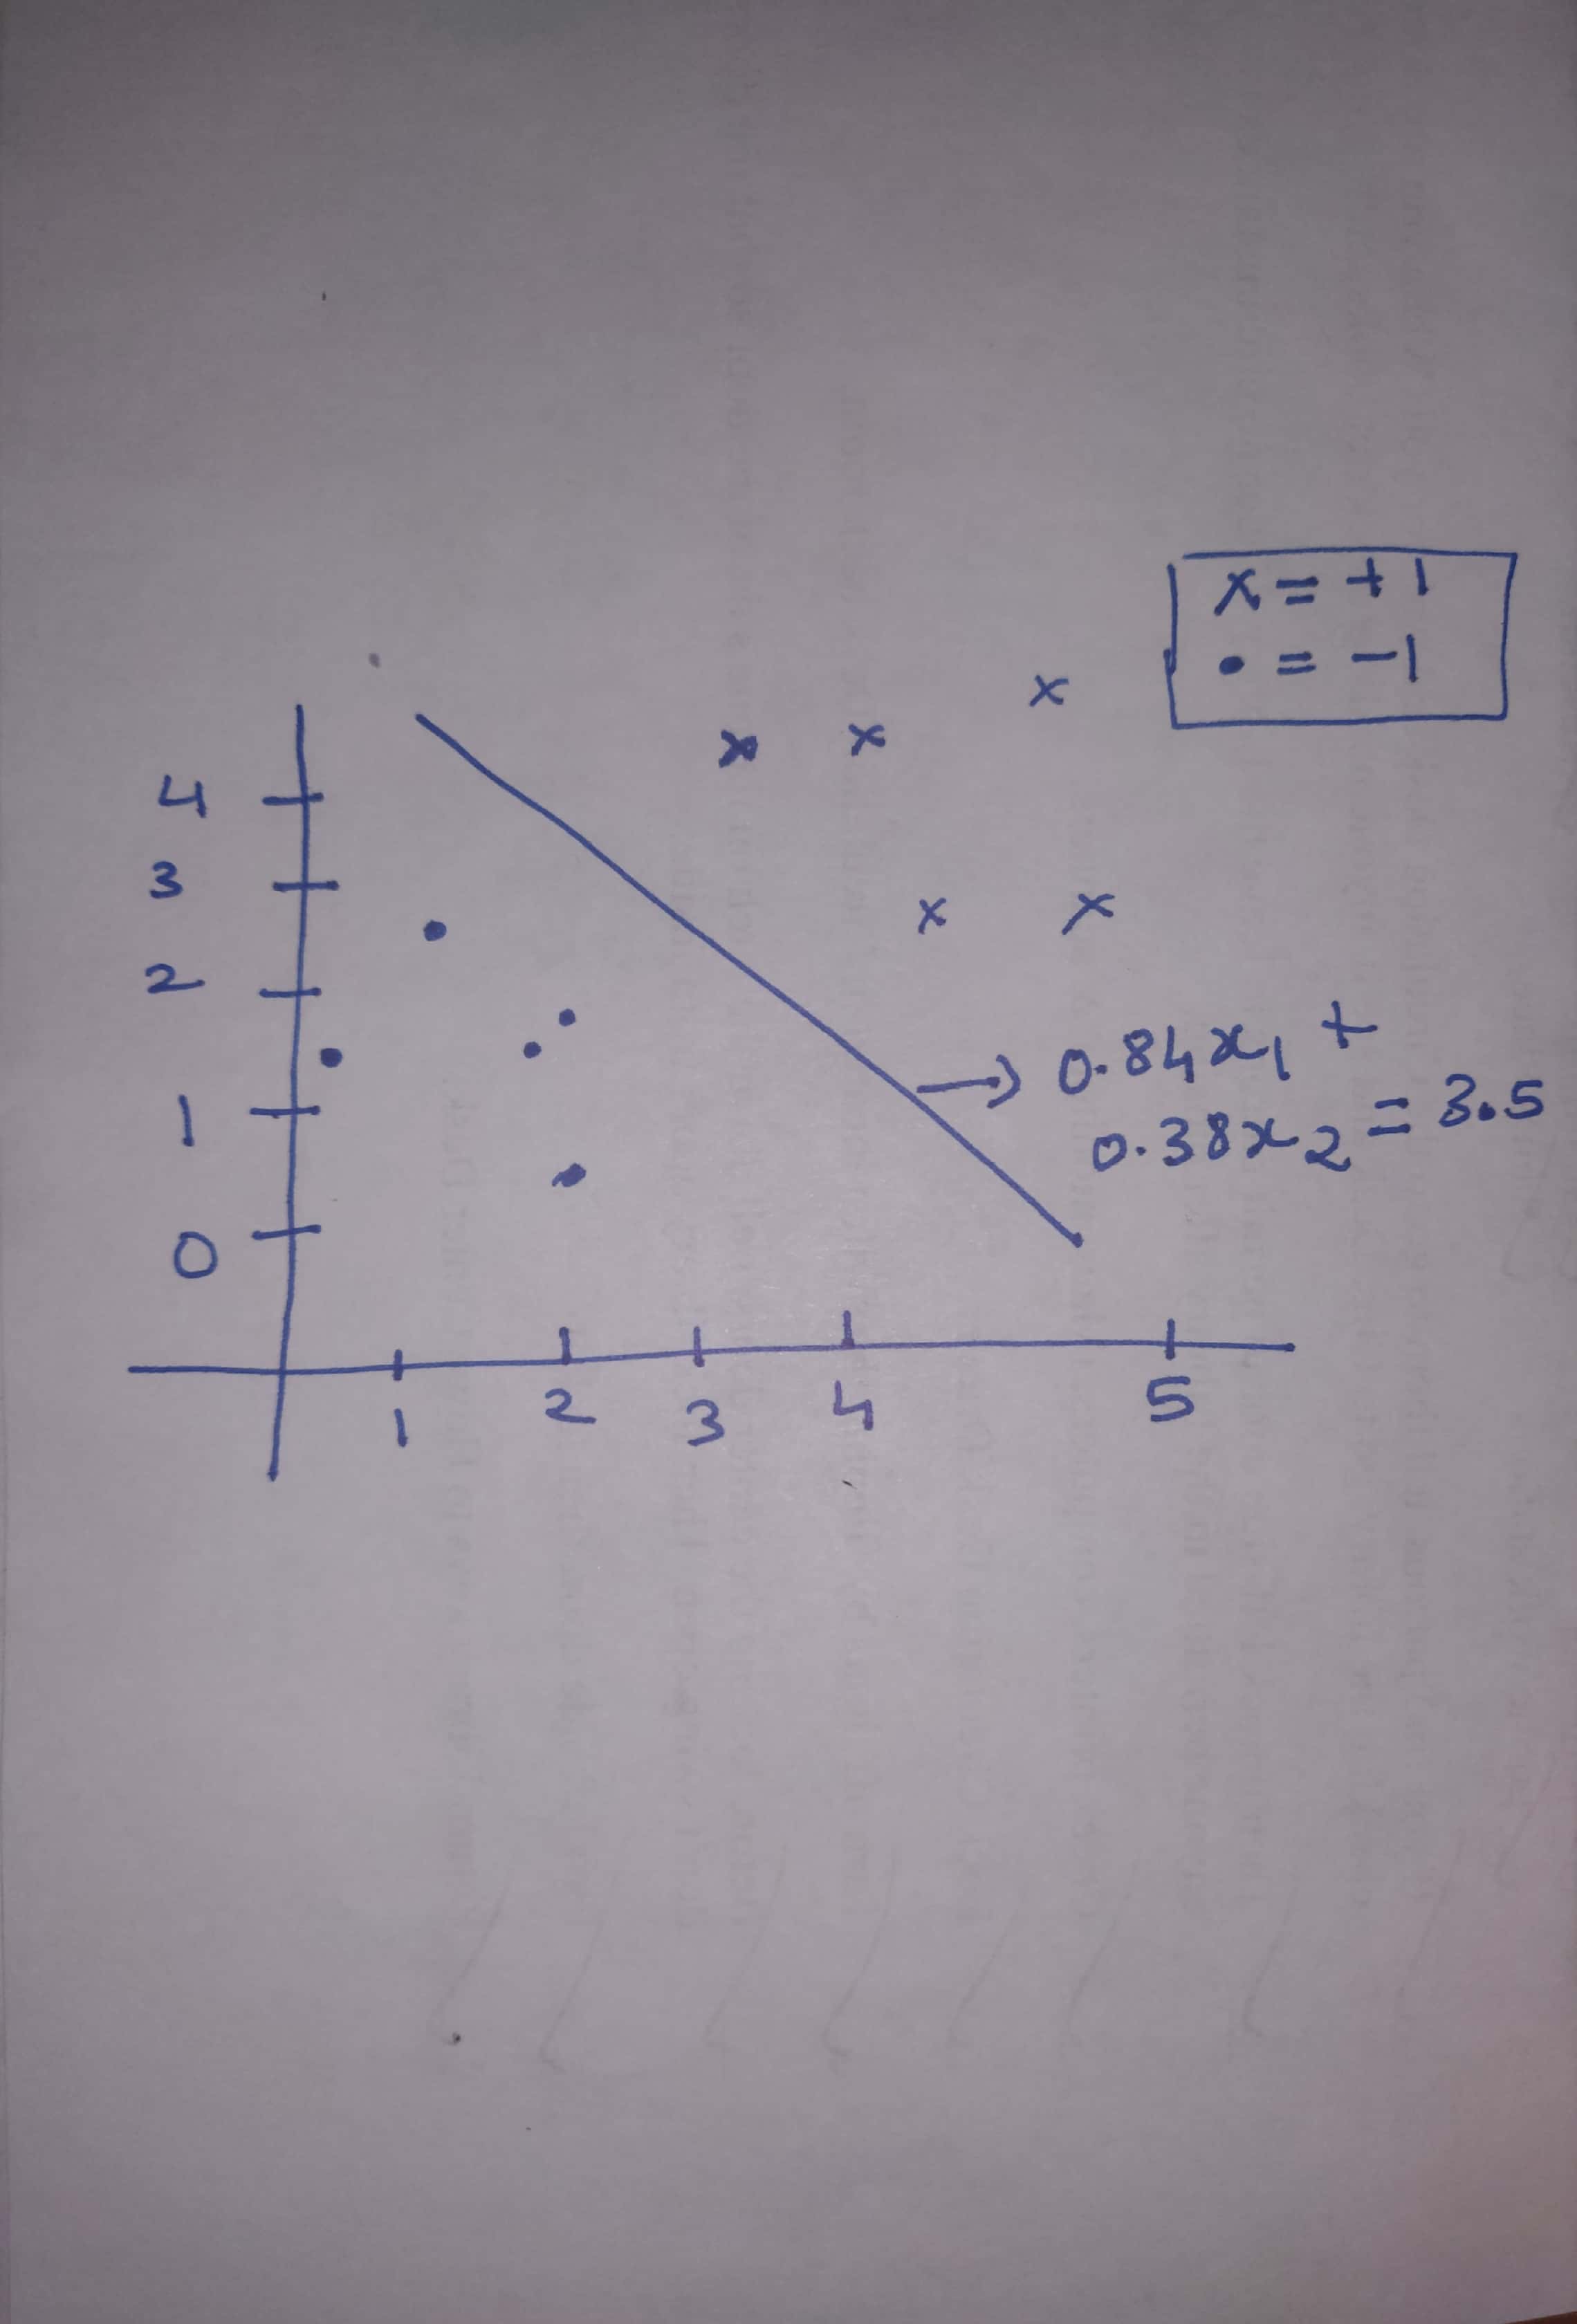 x = +1
• = -1
4
3
2
1
0
0.84x₁ +
0.38x₂ = 3.5
1 2 3 4 5